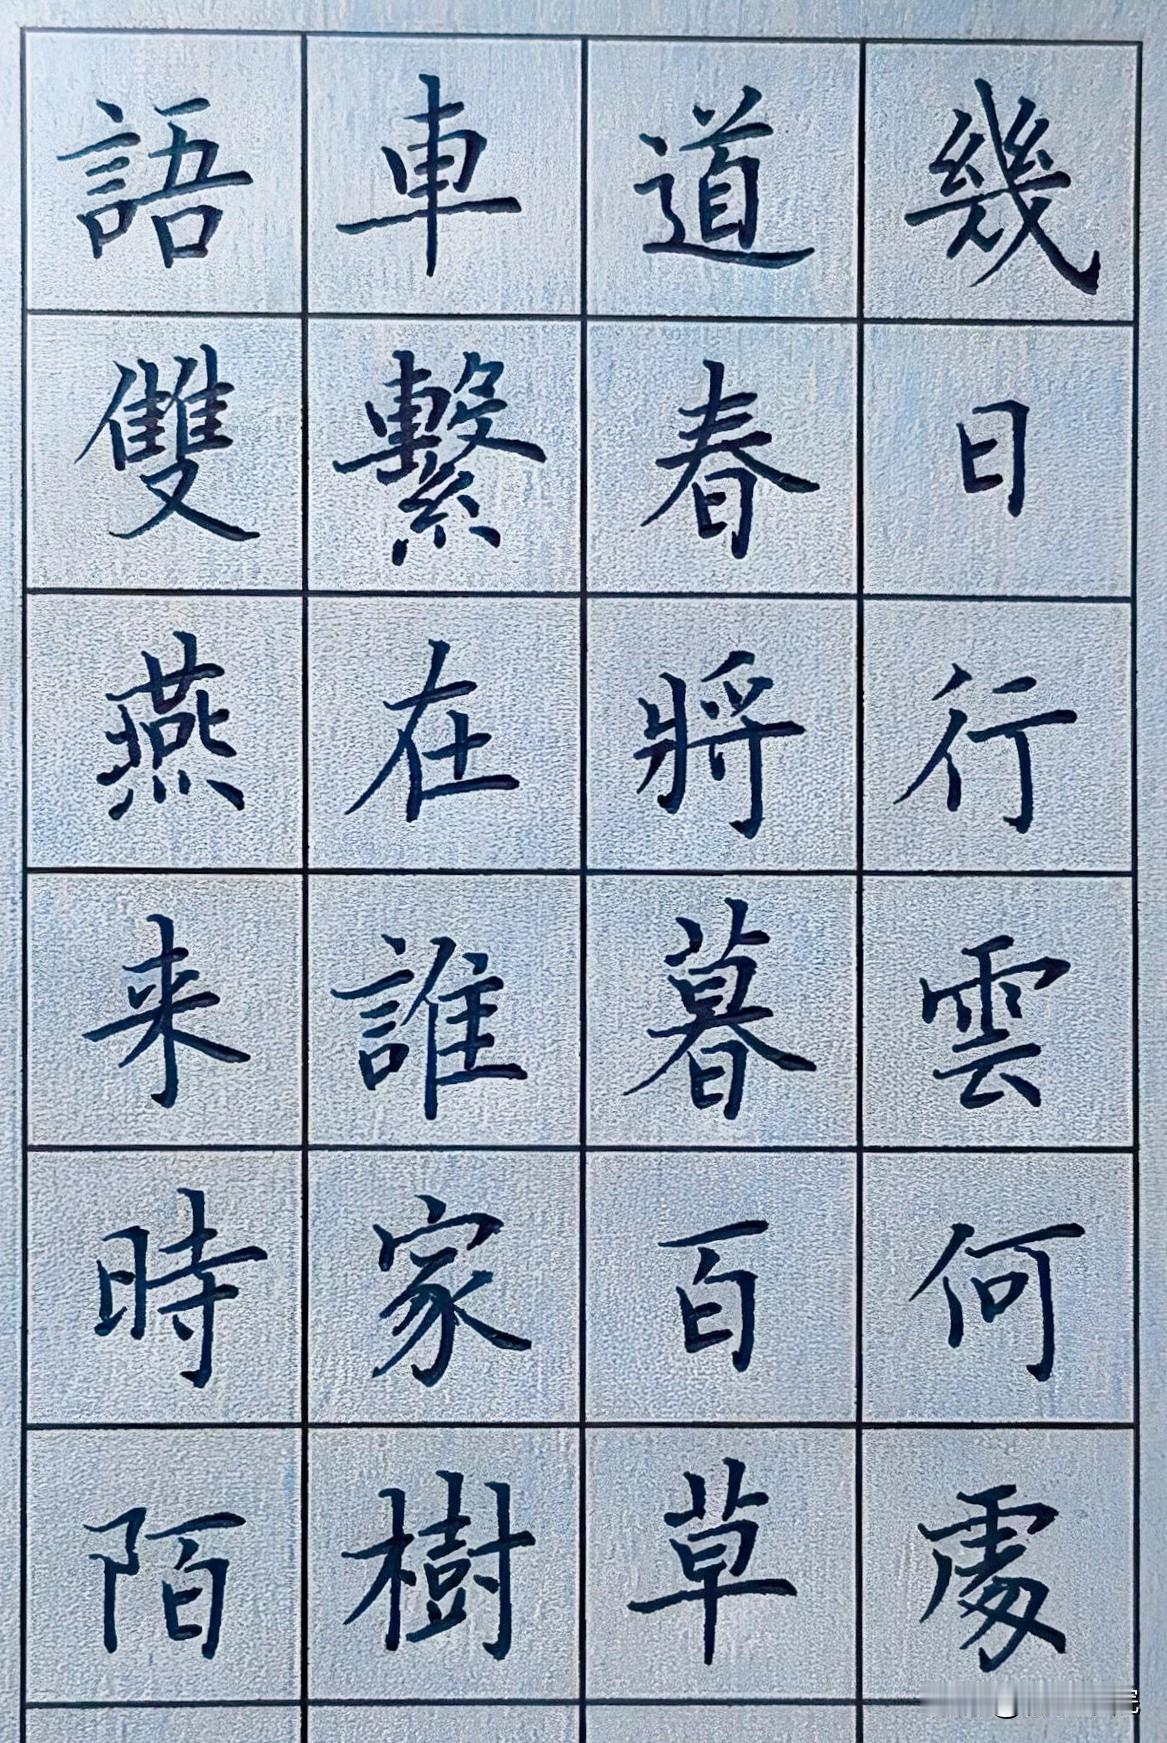 幾日行雲何處
道春將暮百草
車繫在誰家樹
語雙燕来時陌